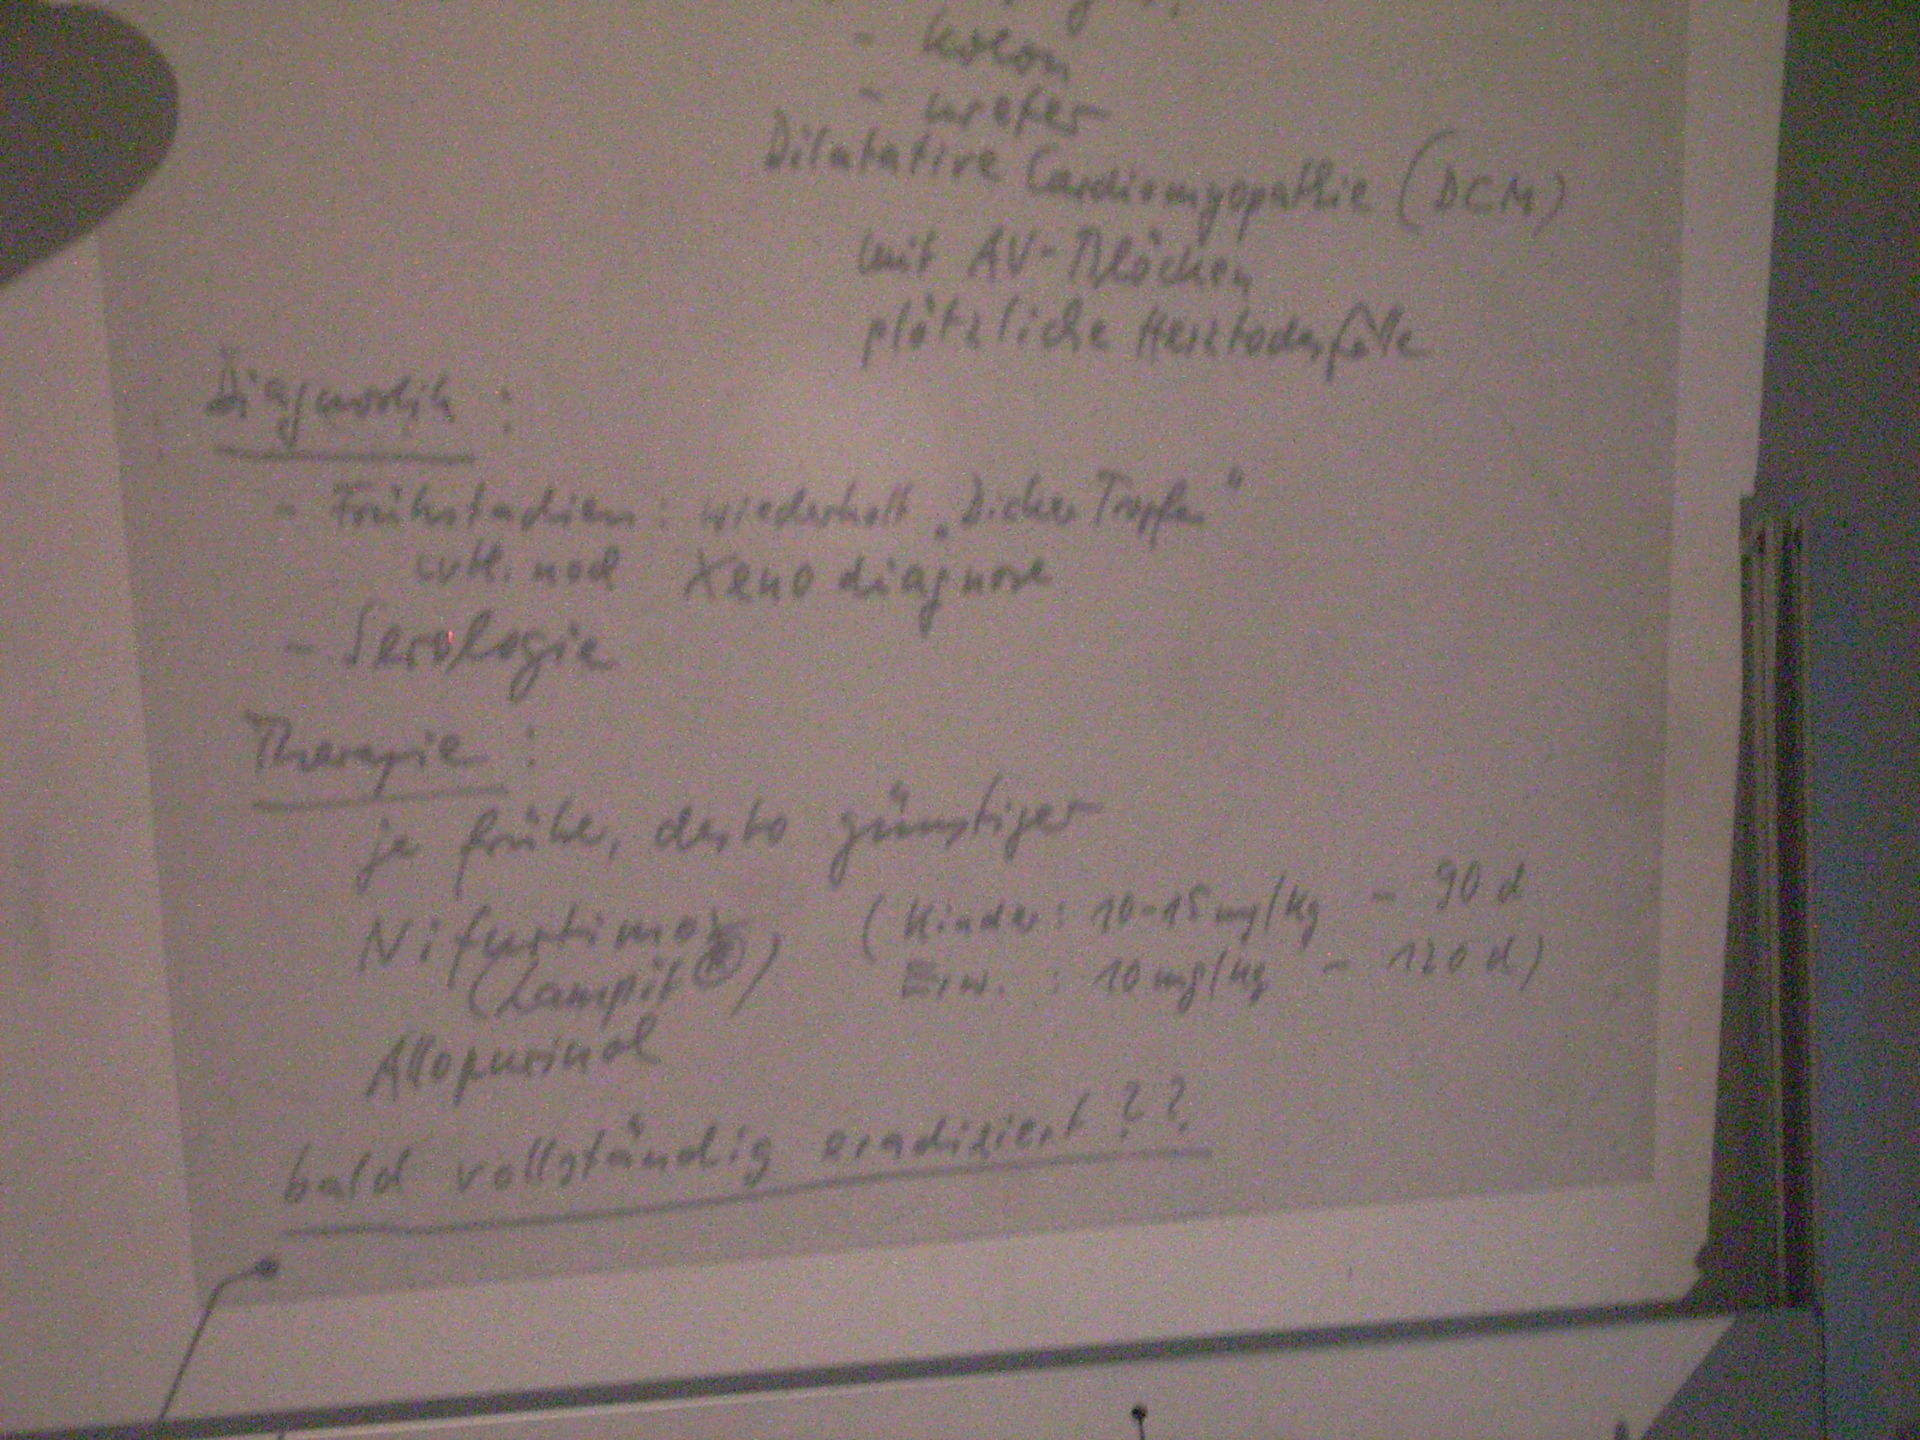 - Kolon
- Ureter
Dilatative Cardiomyopathie (DCM)
mit AV-Blöcken
plötzliche Herztodesfälle
Diagnostik :
- Frühstadien : wiederholt „Dicker Tropfen“
evtl. noch Xenodiagnose
- Serologie
Therapie :
je früher, desto günstiger
Nifurtimox (Kinder : 10-15 mg/kg - 90 d
(Lampit ®) Erw. : 10 mg/kg - 120 d)
Allopurinol
bald vollständig eradiziert ??